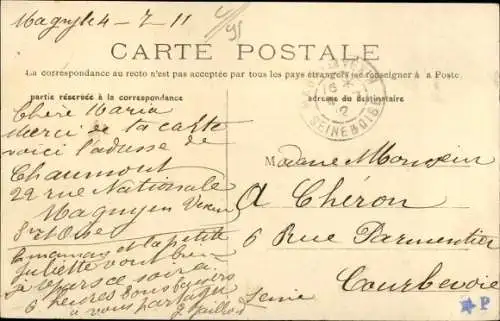 Magny le 4 - 7 11
4/95
CARTE POSTALE
La correspondance au recto n'est pas acceptée par tous les pays étrangers (se renseigner à a Poste
partie réservée à la correspondance
adresse du destinataire
SEINE & OISE
Chère Maria
Merci de ta carte
voici l'adresse de
Chaumont
22 rue Nationale
Magny en Vexin
S et Oise
maman et la petite
Juliette vont bien
ce soir à
6 heures bons baisers
à vous
Madame Monvoisin
A Chéron
6 Rue Parmentier
Courbevoie
Seine
P